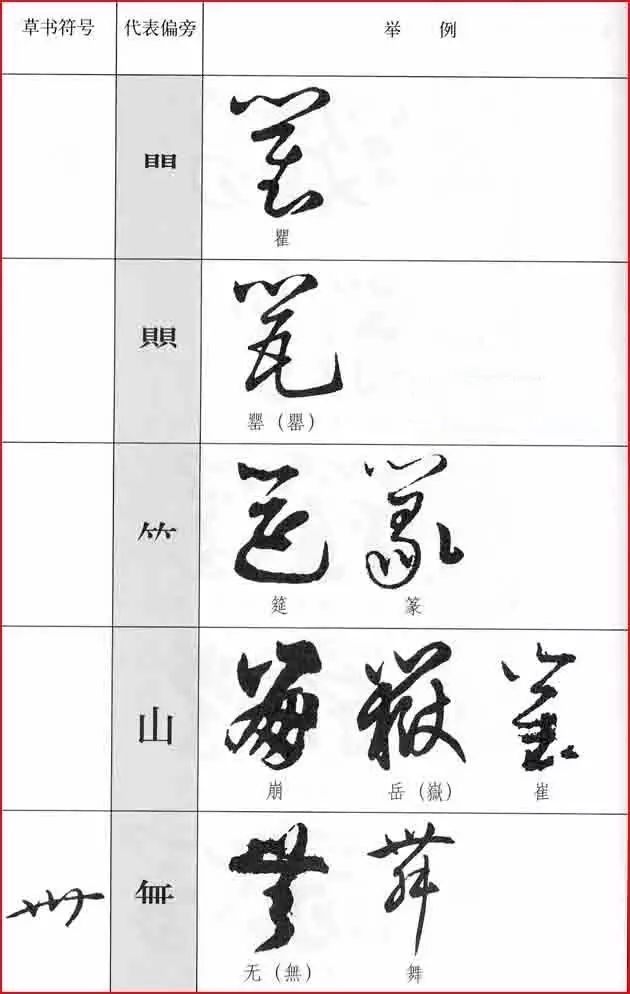 草书符号 代表偏旁 举例
䀠
瞿
賏
罂（罌）
⺮
筵 篆
山
崩 岳（嶽） 崔
無
无（無） 舞